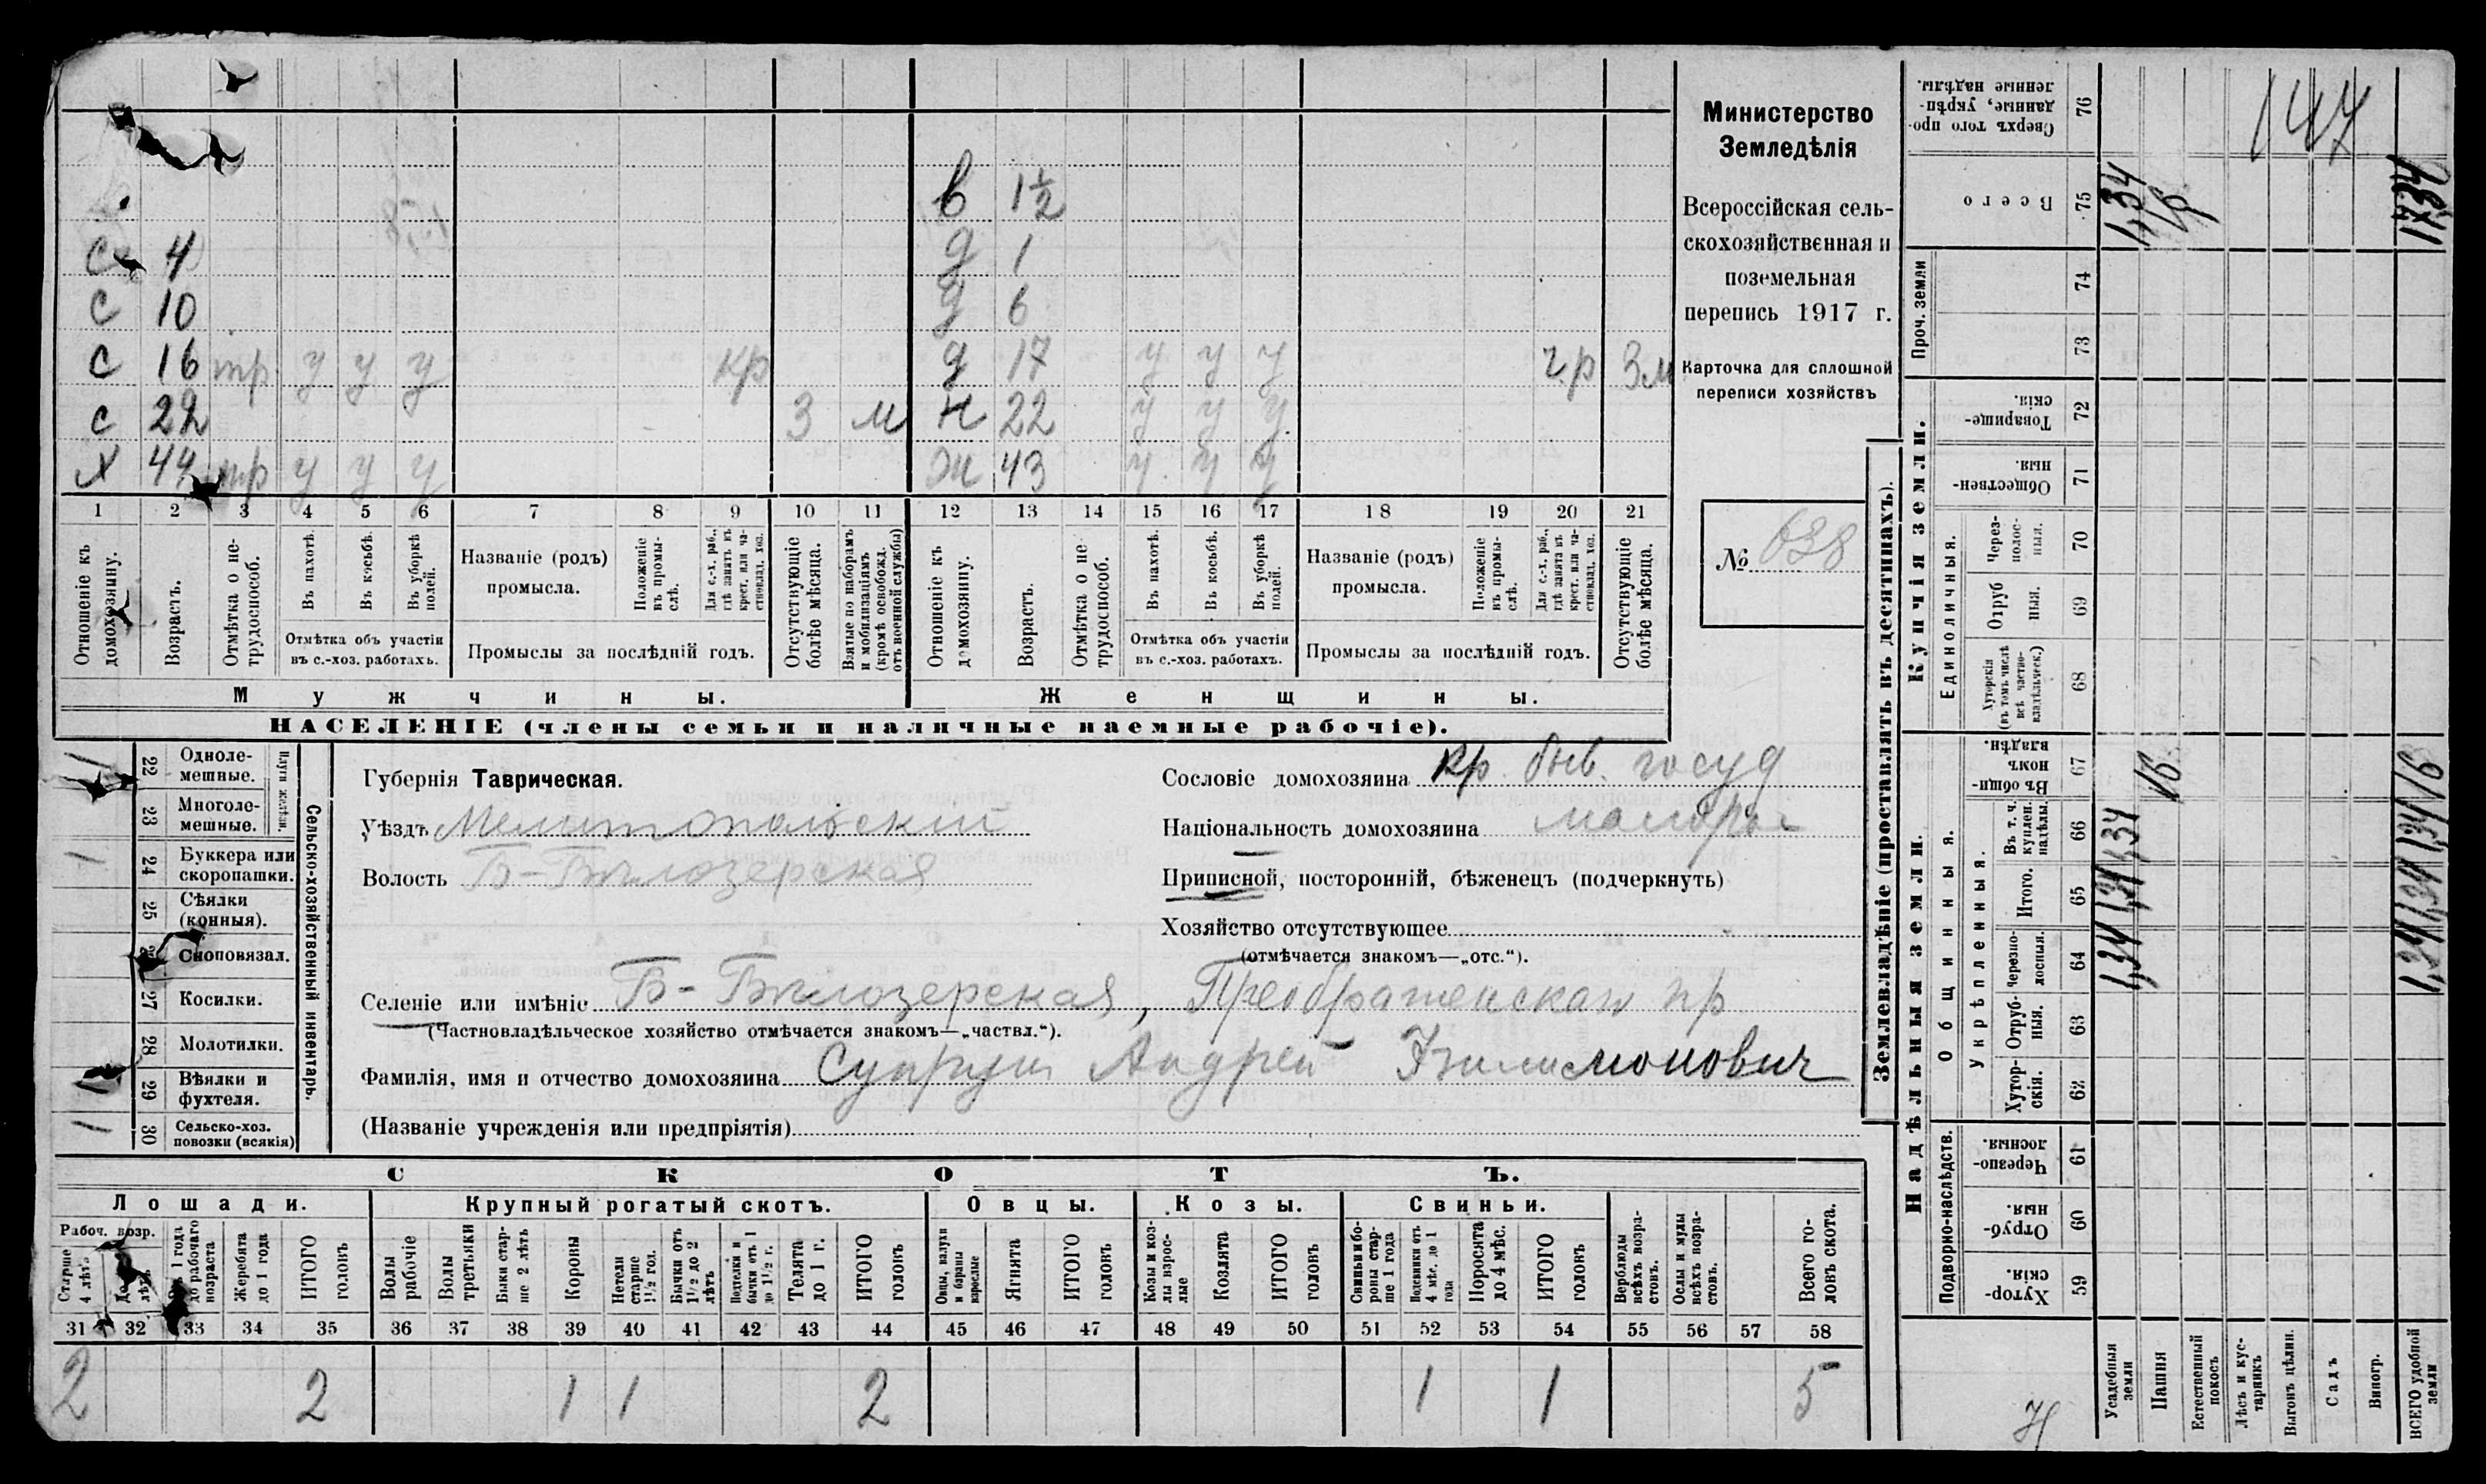 в 1½
с 4 д 1
с 10 д 6
с 16 тр у у у кр д 17 у у у гр 3 м
с 22 3 м н 22 у у у
х 44 тр у у у ж 43 у у у
1 2 3 4 5 6 7 8 9 10 11 12 13 14 15 16 17 18 19 20 21
Отношеніе къ домохозяину.
Возрастъ.
Отмѣтка о нетрудоспособ.
Въ пахотѣ.
Въ косьбѣ.
Въ уборкѣ полей.
Отмѣтка объ участіи въ с.-хоз. работахъ.
Названіе (родъ) промысла.
Положеніе въ промыслѣ.
Для с.-х. раб., гдѣ занятъ въ крест. или частновлад. хоз.
Промыслы за послѣдній годъ.
Отсутствующіе болѣе мѣсяца.
Взятые по наборамъ и мобилизаціямъ (кромѣ освобожд. отъ военной службы)
Отношеніе къ домохозяину.
Возрастъ.
Отмѣтка о не трудоспособ.
Въ пахотѣ.
Въ косьбѣ.
Въ уборкѣ полей.
Отмѣтка объ участіи въ с.-хоз. работахъ.
Названіе (родъ) промысла.
Положеніе въ промыслѣ.
Для с.-х. раб., гдѣ занятъ въ крест. или частновлад. хоз.
Промыслы за послѣдній годъ.
Отсутствующіе болѣе мѣсяца.
Мужчины. Женщины.
НАСЕЛЕНІЕ (члены семьи и наличные наемные рабочіе).
Министерство
Земледѣлія
Всероссійская сель-
скохозяйственная и
поземельная
перепись 1917 г.
Карточка для сплошной
переписи хозяйствъ
№ 638
1 22 Однолемешные.
23 Многолемешные.
Плуги желѣзн.
1 24 Буккера или скоропашки.
25 Сѣялки (конныя).
26 Сноповязал.
27 Косилки.
28 Молотилки.
1 29 Вѣялки и фухтеля.
1 30 Сельско-хоз. повозки (всякія)
Сельско-хозяйственный инвентарь.
Губернія Таврическая.
Уѣздъ Мелитопольскій
Волость Б-Бѣлозерская
Сословіе домохозяина кр. быв. госуд
Національность домохозяина малорос
Приписной, посторонній, бѣженецъ (подчеркнуть)
Хозяйство отсутствующее
(отмѣчается знакомъ—„отс.“).
Селеніе или имѣніе Б-Бѣлозерская, Преображенская пр
(Частновладѣльческое хозяйство отмѣчается знакомъ—„частвл.“).
Фамилія, имя и отчество домохозяина Супрун Андрей Филимонович
(Названіе учрежденія или предпріятія)
СКОТЪ.
Лошади. Крупный рогатый скотъ. Овцы. Козы. Свиньи.
Рабоч. возр.
Старше 4 лѣтъ
До 4 лѣтъ
Отъ 1 года до рабочаго возраста
Жеребята до 1 года
ИТОГО головъ
Волы рабочіе
Волы третьяки
Быки старше 2 лѣтъ
Коровы
Нетели старше 1½ год.
Бычки отъ 1½ до 2 лѣтъ
Подтелки и бычки отъ 1 до 1½ г.
Телята до 1 г.
ИТОГО головъ
Овцы, валухи и бараны взрослые
Ягнята
ИТОГО головъ
Козы и козлы взрослые
Козлята
ИТОГО головъ
Свиньи и боровы старше 1 года
Подсвинки отъ 4 мѣс. до 1 года
Поросята до 4 мѣс.
ИТОГО головъ
Верблюды всѣхъ возрастовъ.
Ослы и мулы всѣхъ возрастовъ.
Всего головъ скота.
31 32 33 34 35 36 37 38 39 40 41 42 43 44 45 46 47 48 49 50 51 52 53 54 55 56 57 58
2 2 1 1 2 1 1 5
Землевладѣніе (проставлять въ десятинахъ).
147
Сверхъ того проданные, укрѣпленные надѣлы. 76
Всего 75 1,34 1/6 1,34
Проч. земли 74 73
Купчія земли.
Товарищескія. 72
Общественныя. 71
Единоличныя.
Черезполосныя. 70
Отрубныя. 69
Хуторскія (въ томъ числѣ всѣ частновладѣльческ.) 68
Надѣльныя земли.
Общинныя.
Въ общинномъ владѣн. 67 1/6 1/6
Укрѣпленныя.
Въ т. ч. куплен. надѣлы. 66 1,34 1,34
Итого. 65 1,34 1,34
Черезполосныя. 64 1,34 1,34
Отрубныя. 63
Хуторскія. 62
Подворно-наслѣдств.
Черезполосныя. 61
Отрубныя. 60
Хуторскія. 59
Усадебныя земли
Пашня
Естественный покосъ
Лѣсъ и кустарникъ
Выгонъ цѣлин.
Садъ
Виногр.
ВСЕГО удобной земли